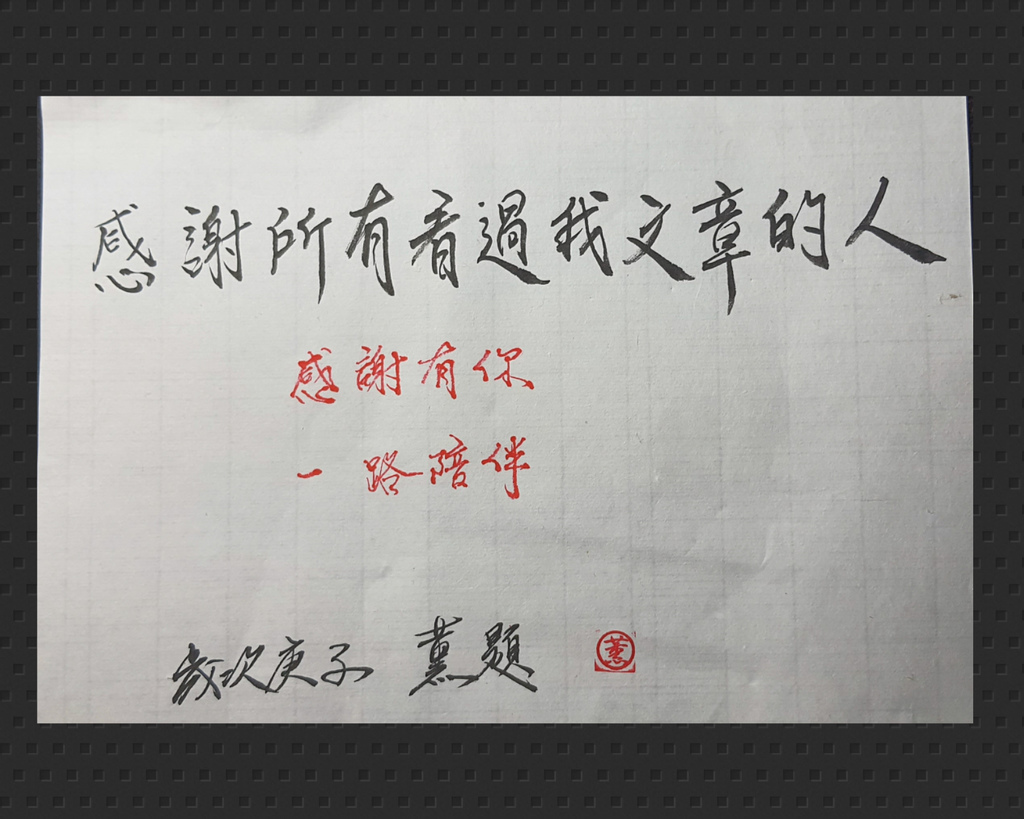 感謝所有看過我文章的人
感謝有你
一路陪伴
歲次庚子 薰題